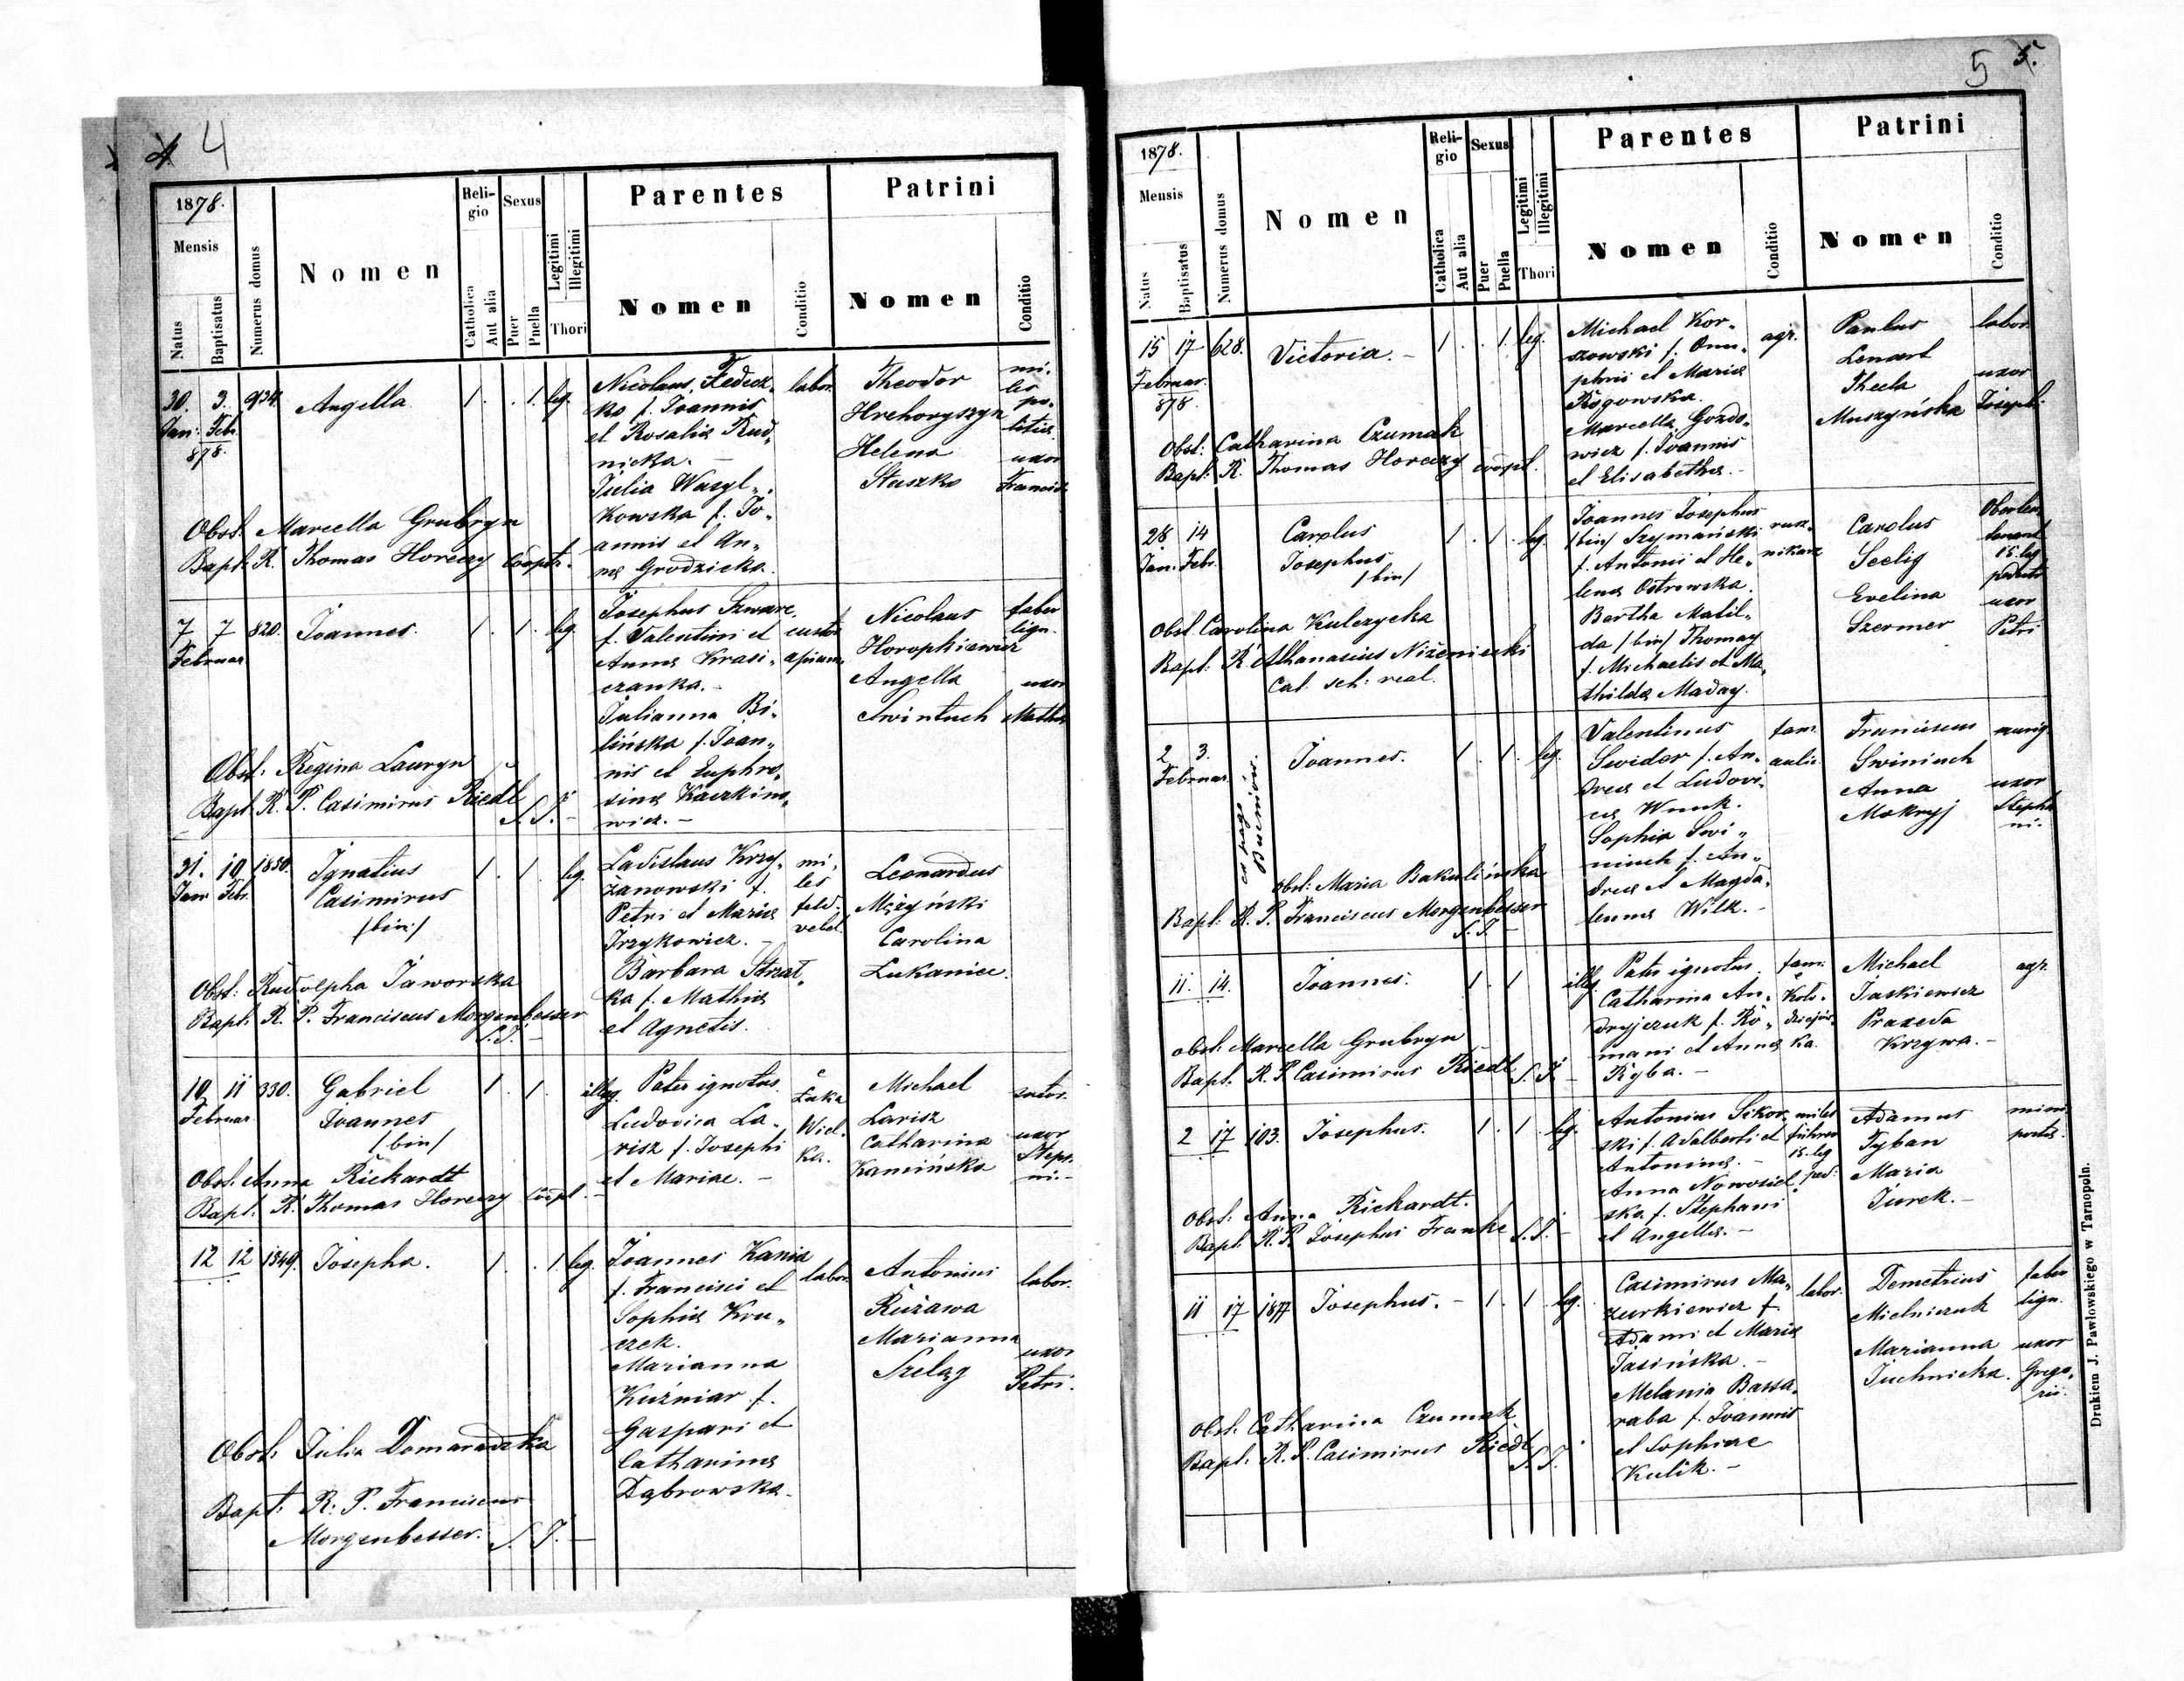 4 4
1878.
Mensis
Natus
Baptisatus
Numerus domus
Nomen
Religio
Catholica
Aut alia
Sexus
Puer
Puella
Legitimi
Illegitimi
Thori
Parentes
Nomen
Conditio
Patrini
Nomen
Conditio
30. 3. 934. Angella 1. . . 1. leg.
Jan: Feb
878.
Nicolaus Fedecz-
ko f. Joannis
et Rosalia Rud-
nicka. —
Julia Wasyl-
kowska f. Jo-
annis et An-
na Grodzicka.
labor.
Theodor
Hrehoryszyn
Helena
Staszko
mi-
les
po-
litia
uxor
Francis
Obst. Marcella Grubryn
Bapt. R. Thomas Horeczy Coopt.
7 7 820. Joannes. 1. . 1. . leg.
Februar
Josephus Szwarc
f. Valentini et
Anna Krasi-
czanka. —
Julianna Bi-
lińska f. Joan-
nis et Euphro-
sina Kaczkino-
wicz. —
custos
apium
Nicolaus
Horopkiewicz
Angella
Swintuch
faber
lign.
uxor
Mathi
Obst: Regina Lauryn
Bapt. R. P. Casimirus Riedl S. J. —
31. 10 1830. Ignatius 1. . 1. . leg.
Jan Feb.
Casimirus
/bin/
Ladislaus Krzy-
żanowski f.
Petri et Maria
Trzykowicz. —
Barbara Strzat-
ka f. Mathia
et Agnetis.
mi-
les
feld-
vebel.
Leonardus
Mężyński
Carolina
Łukaniec.
Obst: Rudolpha Jaworska
Bapt. R. P. Franciscus Morgenbesser
S. J. —
10 11 330. Gabriel 1. . 1. . illeg.
Februar
Joannes
/bin/
Pater ignotus.
Ludovica La-
risz f. Josephi
et Mariae. —
Łuka
Wiel-
ka.
Michael
Larisz
Catharina
Kamińska
sutor.
uxor
Steph-
ni. —
Obst. Anna Rickardt
Bapt. R. Thomas Horeczy Coopt. —
12 12 1349. Josepha. 1. . . 1 leg.
Joannes Kania
f. Francisci et
Sophia Kru-
czek.
Marianna
Kuźniar f.
Gaspari et
Catharina
Dąbrowska.
labor.
Antonius
Rużawa
Marianna
Szeląg
labor.
uxor
Petri.
Obst. Julia Domaradzka
Bapt. R. P. Franciscus
Morgenbesser. S. J. —
5 5.
1878.
Mensis
Natus
Baptisatus
Numerus domus
Nomen
Religio
Catholica
Aut alia
Sexus
Puer
Puella
Legitimi
Illegitimi
Thori
Parentes
Nomen
Conditio
Patrini
Nomen
Conditio
15 17 628. Victoria. — 1. . . 1. leg.
Februar.
878.
Michael Kor-
szowski f. Onu-
phrii et Maria
Rogowska.
Marcella Gozdo-
wicz f. Joannis
et Elisabetha. —
agr.
Paulus
Lenart
Thecla
Muszyńska
labor
uxor
Josephi
Obst: Catharina Czumak
Bapt. R. Thomas Horeczy coopt.
28 14 Carolus 1. . 1. . leg.
Jan. Feb.
Josephus
/bin/
Joannes Josephus
/bin/ Szymański
f. Antonii et He-
lena Ostrowska.
Bertha Matil-
da /bin/ Thomay
f. Michaelis et Ma-
thilda Maday.
rusz-
nikarz
Carolus
Seelig
Evelina
Szermer
Oberleu-
tenant
15. leg
uxor
Petri
Obst. Carolina Kulczycka
Bapt. R. Athanasius Niżeniecki
Cat. sch: real.
2 3. Joannes. 1. . 1. . leg.
Februar
ex pago
Valentinus
Swider f. An-
drea et Ludovi-
ca Wnuk.
Sophia Swi-
niuch f. An-
drea et Magda-
lenna Wilk. —
fam.
aulic.
Franciscus
Swiniuch
Anna
Mokryj
aurig.
uxor
Stepha
ni.
Obst: Maria Bakalińska
Bapt. R. P. Franciscus Morgenbesser
S. J. —
11. 14. Joannes. 1. . 1. illeg.
Pater ignotus.
Catharina An-
dryjczuk f. Ro-
mani et Anna
Ryba. —
fam.
Koło-
dziejów-
ka.
Michael
Jaskiewicz
Praxeda
Krzywa. —
agr.
Obst. Marcella Grubryn
Bapt. R. P. Casimirus Riedl S. J. —
2 17 103. Josephus. 1. . 1. . leg.
Antonius Sikor-
ski f. Adalberti et
Antonina. —
Anna Nowosiel-
ska f. Stephani
et Angella. —
miles
führer
15. leg
ped:
Adamus
Tyban
Maria
Jurek. —
Obst: Anna Rickardt.
Bapt. R. P. Josephus Franke S. J. —
11 17 1877 Josephus. — 1. . 1. . leg.
Casimirus Ma-
zurkiewicz f.
Adami et Maria
Jasińska. —
Melania Bassa-
raba f. Joannis
et Sophiae
Kulik. —
labor.
Demetrius
Mielniczuk
Marianna
Juchnicka.
faber
lign.
uxor
Grego-
rii
Obst. Catharina Czumak
Bapt. R. P. Casimirus Riedl
S. J.
Drukiem J. Pawłowskiego w Tarnopoln.